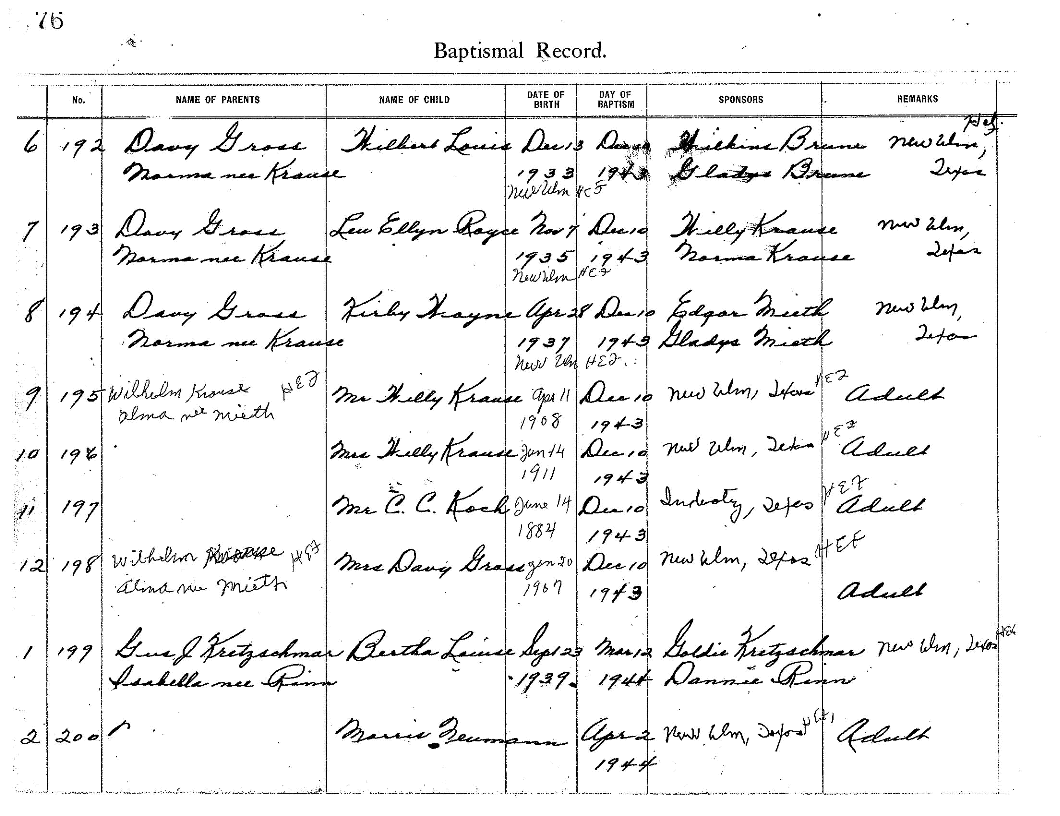 76
Baptismal Record.
No. NAME OF PARENTS NAME OF CHILD DATE OF BIRTH DAY OF BAPTISM SPONSORS REMARKS
6 192 Davy Gross Wilbert Louis Dec 13 Dec Wilkins Brune New Ulm,
Norma nee Krause 1933 1943 Gladys Brune Texas
New Ulm HEF
7 193 Davy Gross Lew Ellyn Royce Nov 7 Dec 10 Willy Krause New Ulm,
Norma nee Krause 1935 1943 Norma Krause Texas
New Ulm HEF
8 194 Davy Gross Kirby Wayne Apr 28 Dec 10 Edgar Mieth New Ulm,
Norma nee Krause 1937 1943 Gladys Mieth Texas
New Ulm HEF
9 195 Wilhelm Krause HEF Mr Willy Krause Apr 11 Dec 10 New Ulm, Texas HEF Adult
Alma nee Mieth 1908 1943
10 196 Mrs Willy Krause Jan 14 Dec 10 New Ulm, Texas HEF Adult
1911 1943
11 197 Mr C. C. Koch June 14 Dec 10 Industry, Texas HEF Adult
1884 1943
12 198 Wilhelm Krause HEF Mrs Davy Gross Jan 20 Dec 10 New Ulm, Texas HEF
Alma nee Mieth 1907 1943 Adult
1 199 Gus J Kretzschmar Bertha Louise Sept 23 Mar 12 Goldie Kretzschmar New Ulm, Texas HEF
Isabella nee Rinn 1939 1944 Dannie Rinn
2 200 Morris Neumann Apr 2 New Ulm, Texas HEF Adult
1944